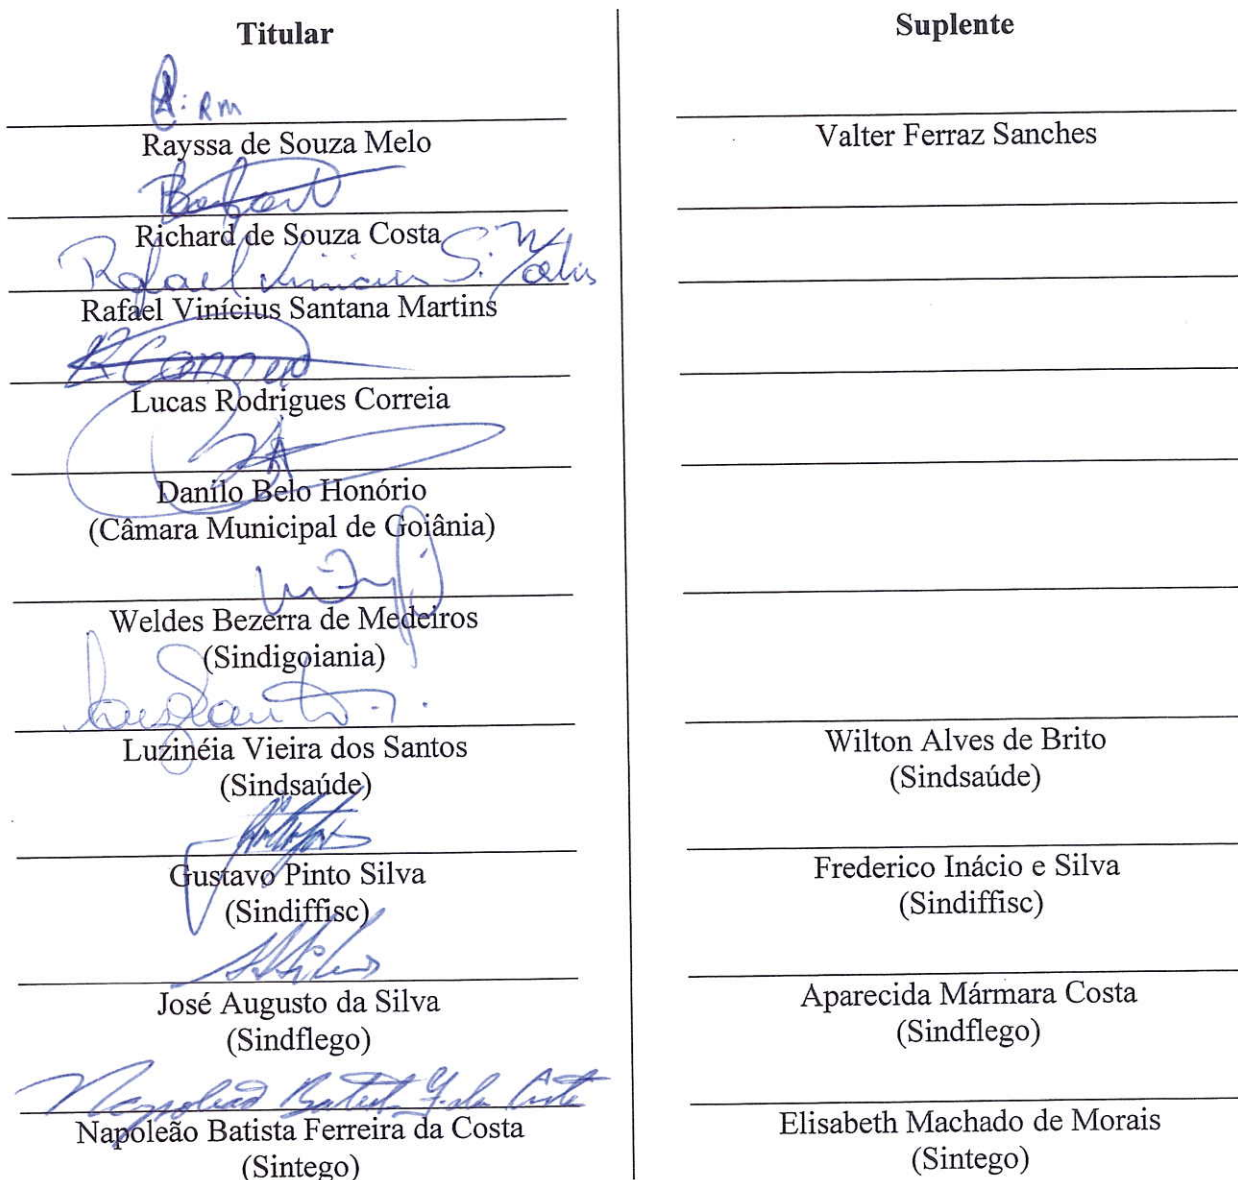 Titular
Rayssa de Souza Melo
Richard de Souza Costa
Rafael Vinicius S. Martins
Rafael Vinícius Santana Martins
Lucas Rodrigues Correia
Danilo Belo Honório
(Câmara Municipal de Goiânia)
Weldes Bezerra de Medeiros
(Sindigoiania)
Luzinéia Vieira dos Santos
(Sindsaúde)
Gustavo Pinto Silva
(Sindiffisc)
José Augusto da Silva
(Sindflego)
Napoleão Batista F. da Costa
Napoleão Batista Ferreira da Costa
(Sintego)
Suplente
Valter Ferraz Sanches
Wilton Alves de Brito
(Sindsaúde)
Frederico Inácio e Silva
(Sindiffisc)
Aparecida Mármara Costa
(Sindflego)
Elisabeth Machado de Morais
(Sintego)